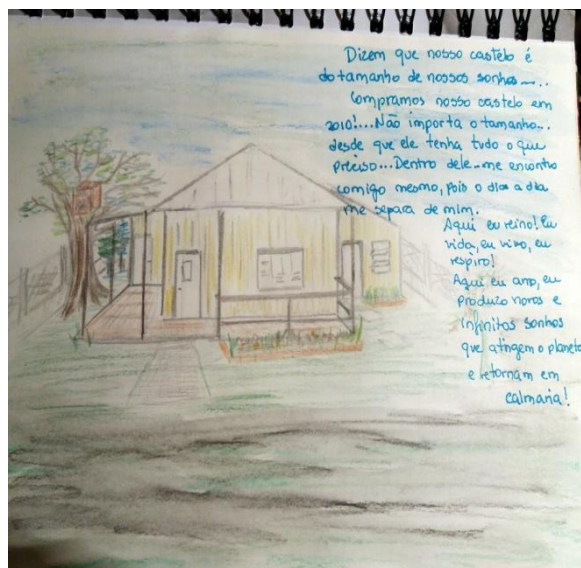 Dizem que nosso castelo é
do tamanho de nossos sonhos.....
Compramos nosso castelo em
2010!...Não importa o tamanho...
desde que ele tenha tudo o que
preciso...Dentro dele...me encontro
comigo mesmo, pois o dia a dia
me separa de mim.
Aqui eu reino! Eu
vida, eu vivo, eu
respiro!
Aqui eu amo, eu
produzo novos e
infinitos sonhos
que atingem o planeta
e retornam em
calmaria!